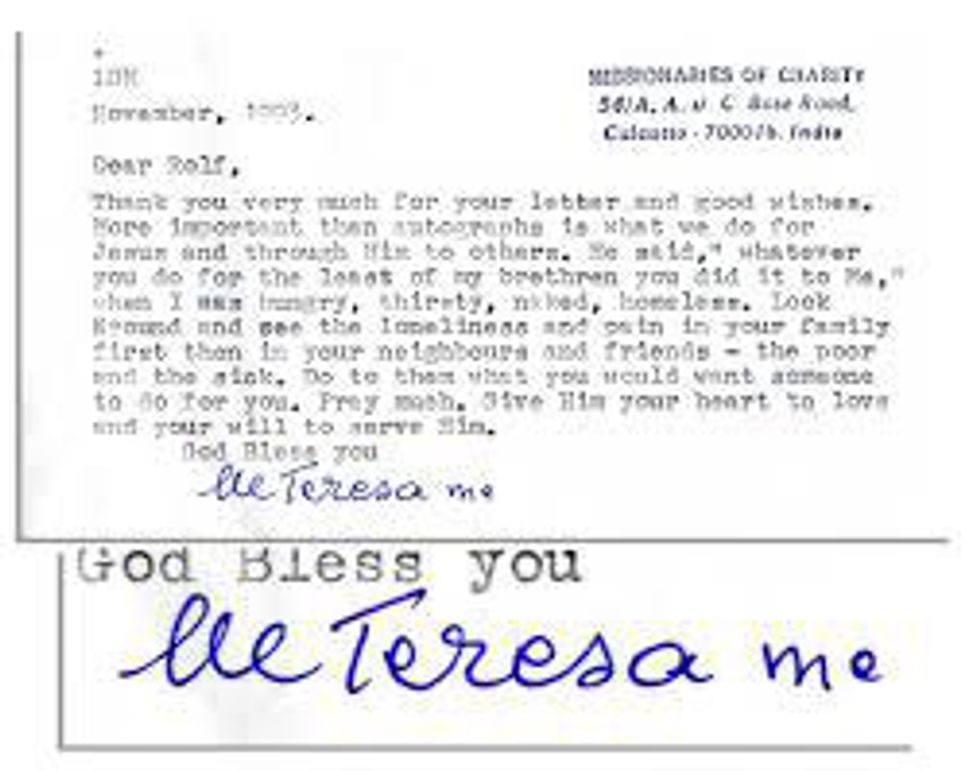 +
LDM
November, 1993.
MISSIONARIES OF CHARITY
54/A, A. J. C. Bose Road,
Calcutta - 700016. India
Dear Rolf,
Thank you very much for your letter and good wishes.
More important than autographs is what we do for
Jesus and through Him to others. He said," whatever
you do for the least of my brethren you did it to Me,"
when I was hungry, thirsty, naked, homeless. Look
around and see the loneliness and pain in your family
first then in your neighbours and friends - the poor
and the sick. Do to them what you would want someone
to do for you. Pray much. Give Him your heart to love
and your will to serve Him.
God Bless you
lle Teresa mc
God Bless you
lle Teresa mc